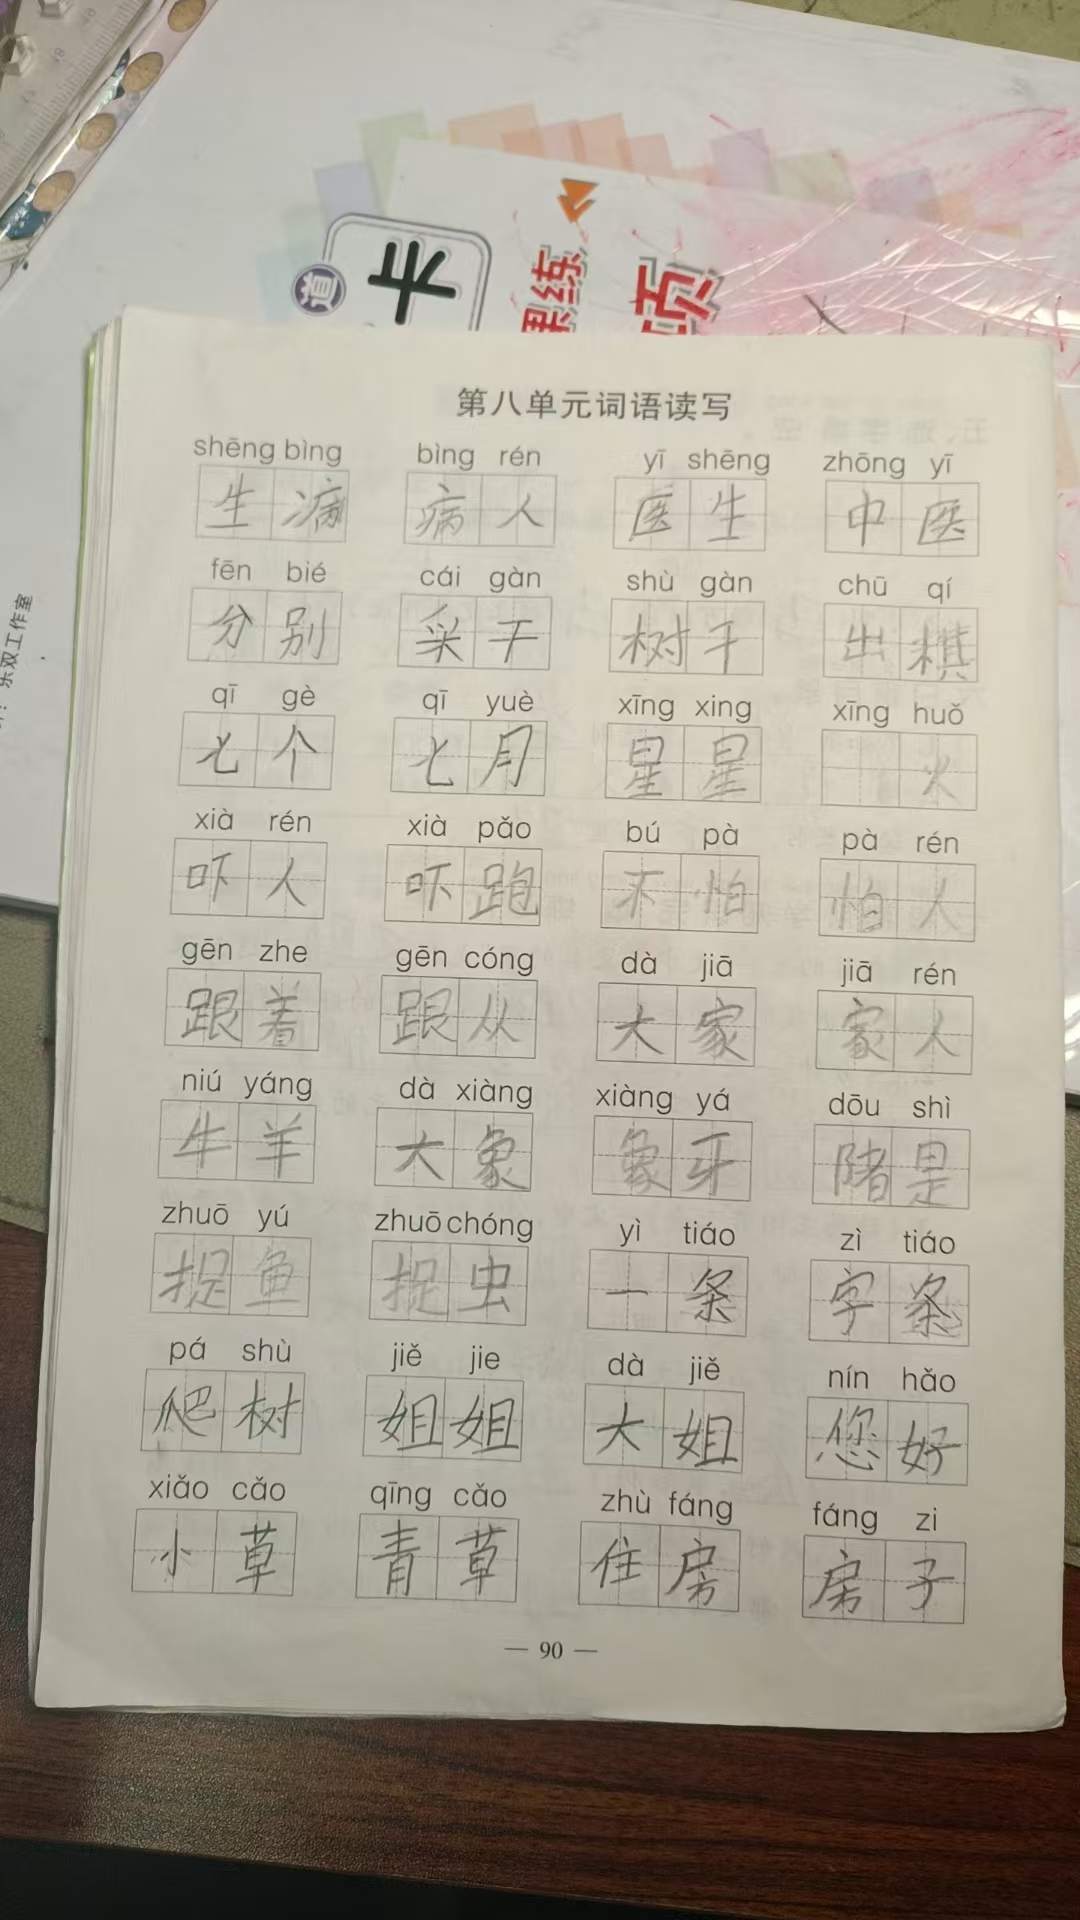 道
卡
课练
乐双工作室
第八单元词语读写
shēng bìng bìng rén yī shēng zhōng yī
生病 病人 医生 中医
fēn bié cái gàn shù gàn chū qí
分别 采干 树干 出棋
qī gè qī yuè xīng xing xīng huǒ
七个 七月 星星 火
xià rén xià pǎo bú pà pà rén
吓人 吓跑 不怕 怕人
gēn zhe gēn cóng dà jiā jiā rén
跟着 跟从 大家 家人
niú yáng dà xiàng xiàng yá dōu shì
牛羊 大象 象牙 陼是
zhuō yú zhuō chóng yì tiáo zì tiáo
捉鱼 捉虫 一条 字条
pá shù jiě jie dà jiě nín hǎo
爬树 姐姐 大姐 您好
xiǎo cǎo qīng cǎo zhù fáng fáng zi
小草 青草 住房 房子
— 90 —